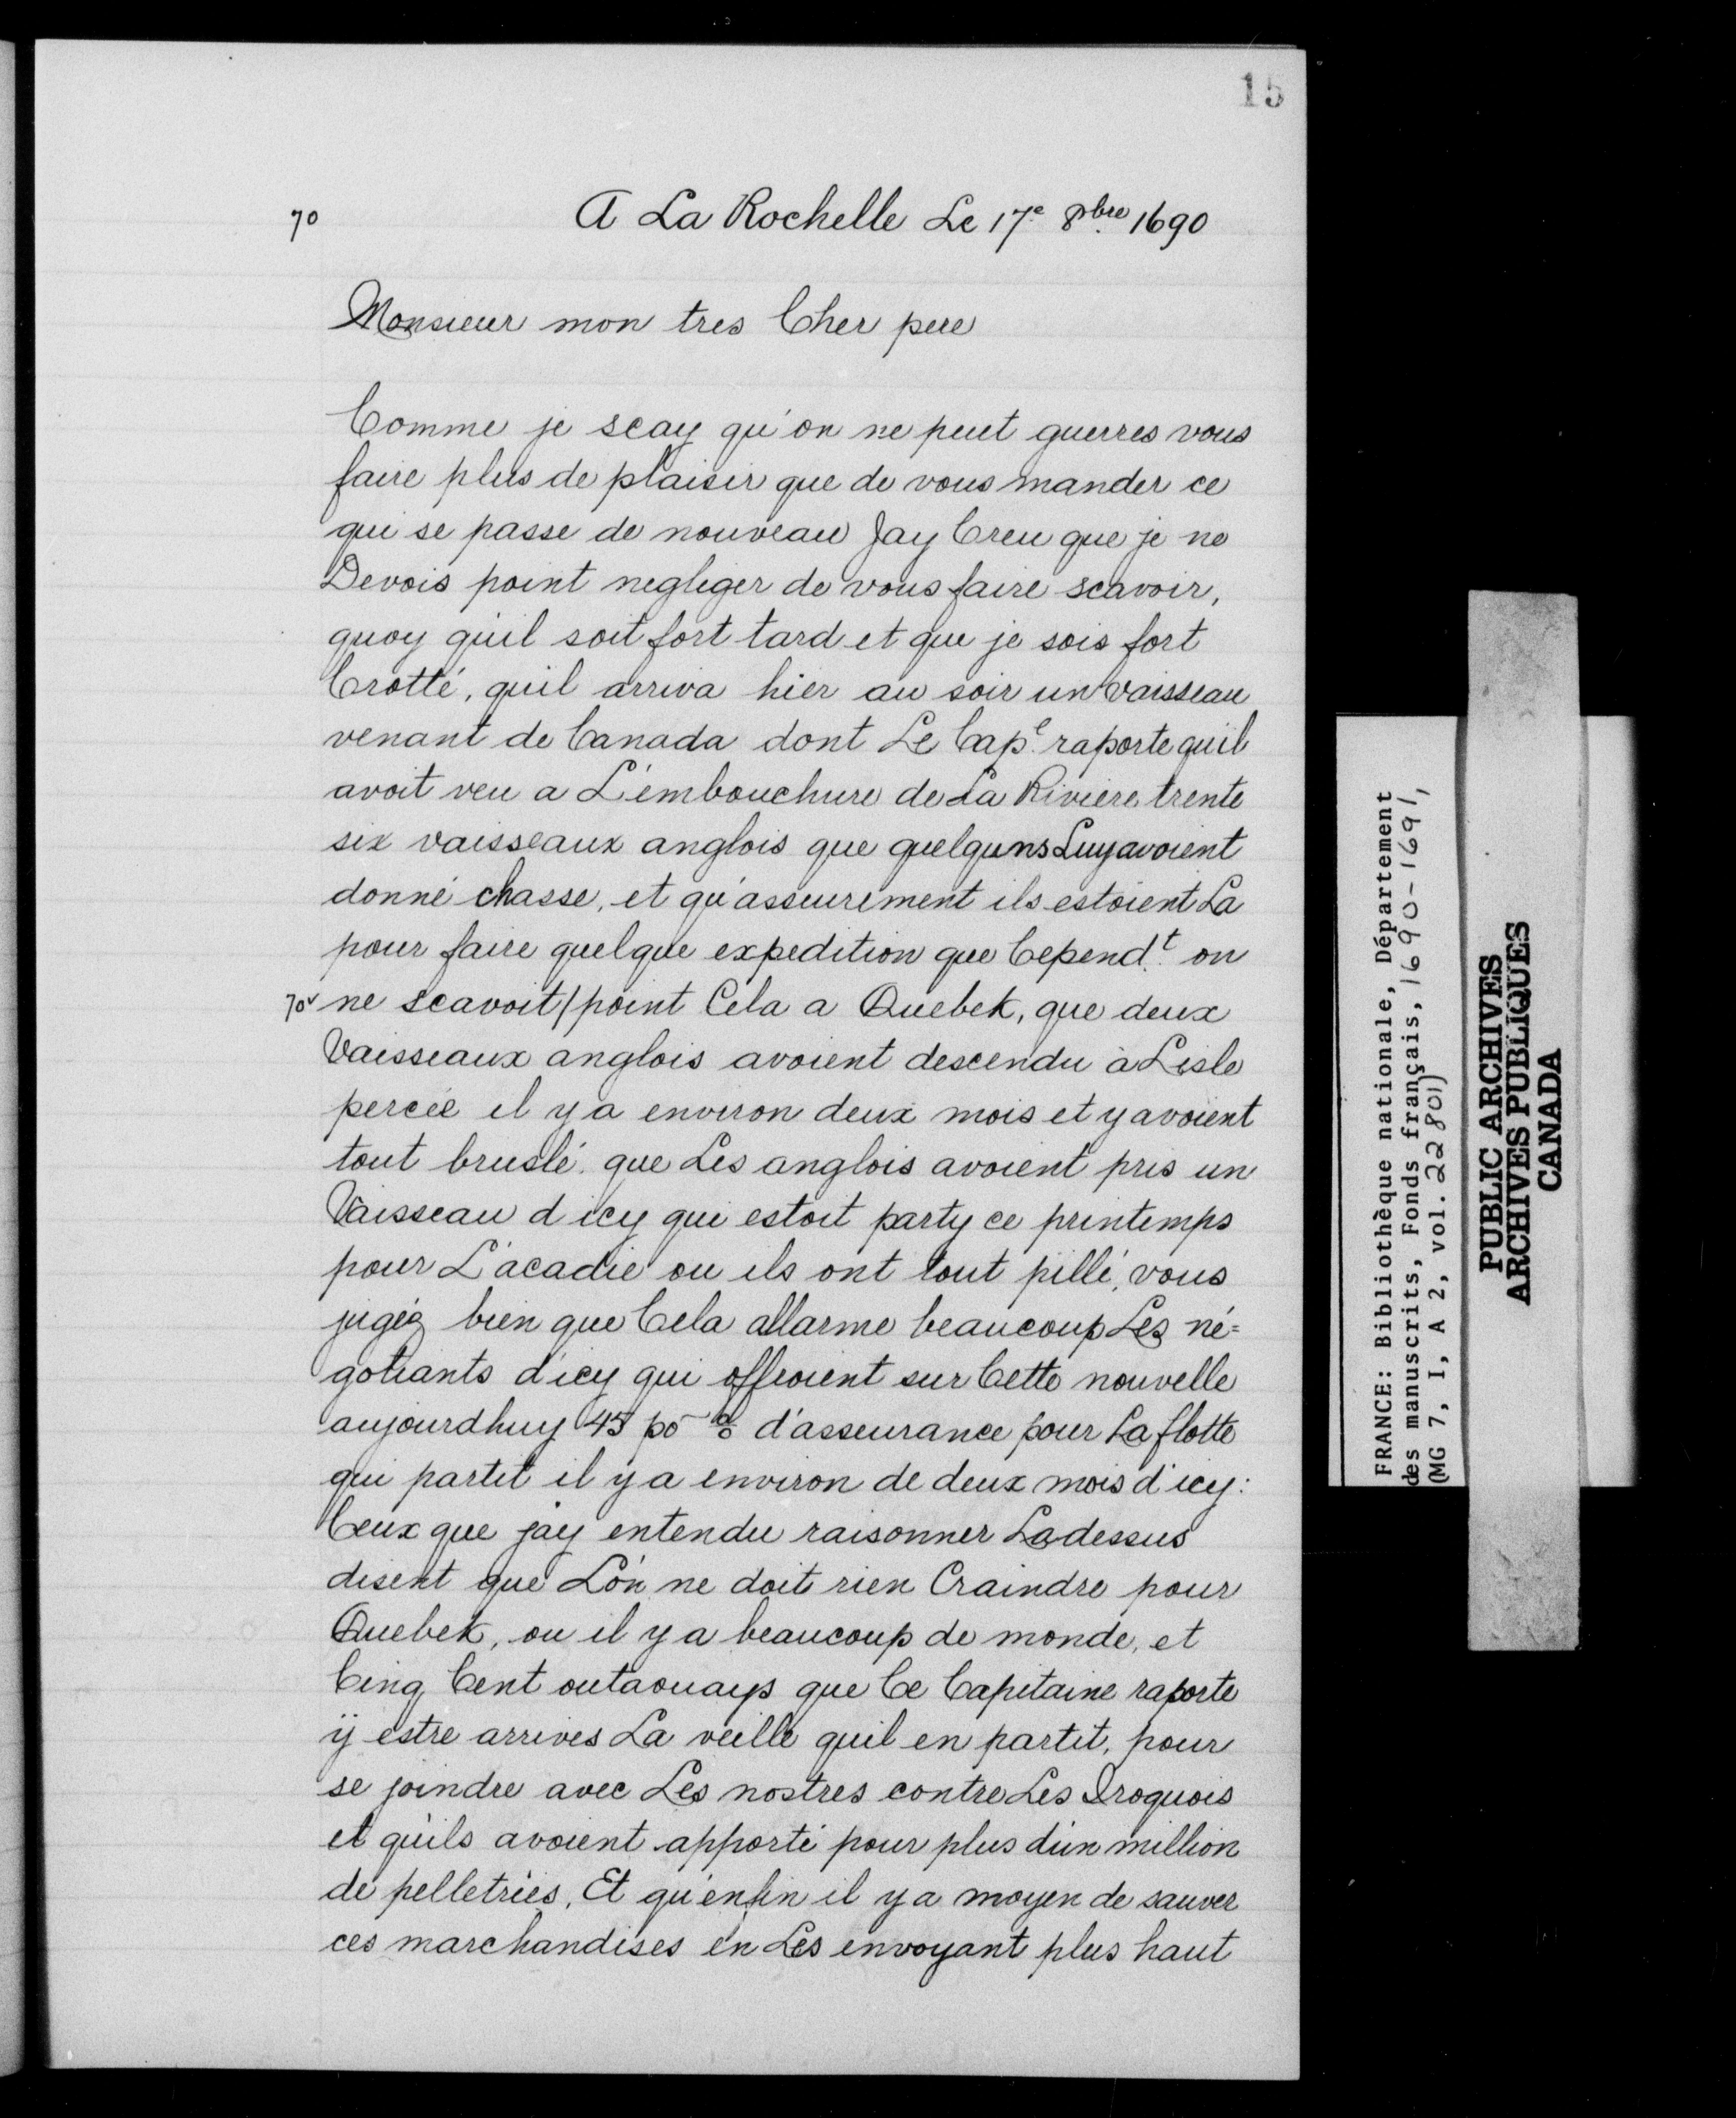 15
70 A La Rochelle Le 17e 8bre 1690
Monsieur mon tres Cher pere
Comme je scay qu'on ne peut guerres vous
faire plus de plaisir que de vous mander ce
qui se passe de nouveau Jay Creu que je ne
Devois point negliger de vous faire scavoir,
quoy qu'il soit fort tard et que je sois fort
Crotté, quil arriva hier au soir un vaisseau
venant de Canada dont Le Cape raporte quil
avoit veu a L'embouchure de La Riviere trente
six vaisseaux anglois que quelquns Luy avoient
donné chasse, et qu'asseurement ils estoient La
pour faire quelque expedition que Cependt on
70v ne scavoit/point Cela a Quebek, que deux
Vaisseaux anglois avoient descendu à Lisle
percée il y a environ deux mois et y avoient
tout bruslé. que Les anglois avoient pris un
Vaisseau d icy qui estoit party ce printemps
pour L'acadie ou ils ont tout pillé, vous
jugéz bien que Cela allarme beaucoup Les né=
gotiants d'icy qui offroient sur Cette nouvelle
aujourdhuy 45 po % d'asseurance pour La flotte
qui partit il y a environ de deux mois d'icy:
Ceux que jay entendu raisonner Ladessus
disent que L'on ne doit rien Craindre pour
Quebek, ou il y a beaucoup de monde, et
Cinq Cent outaouays que Ce Capitaine raporte
ÿ estre arrives La veille quil en partit, pour
se joindre avec Les nostres contre Les Iroquois
et qu'ils avoient apporté pour plus d'un million
de pelletries. Et qu'enfin il y a moyen de sauver
ces marchandises en Les envoyant plus haut
FRANCE: Bibliothèque nationale, Département
des manuscrits, Fonds français, 1690-1691,
(MG 7, I, A 2, vol. 22801)
PUBLIC ARCHIVES
ARCHIVES PUBLIQUES
CANADA